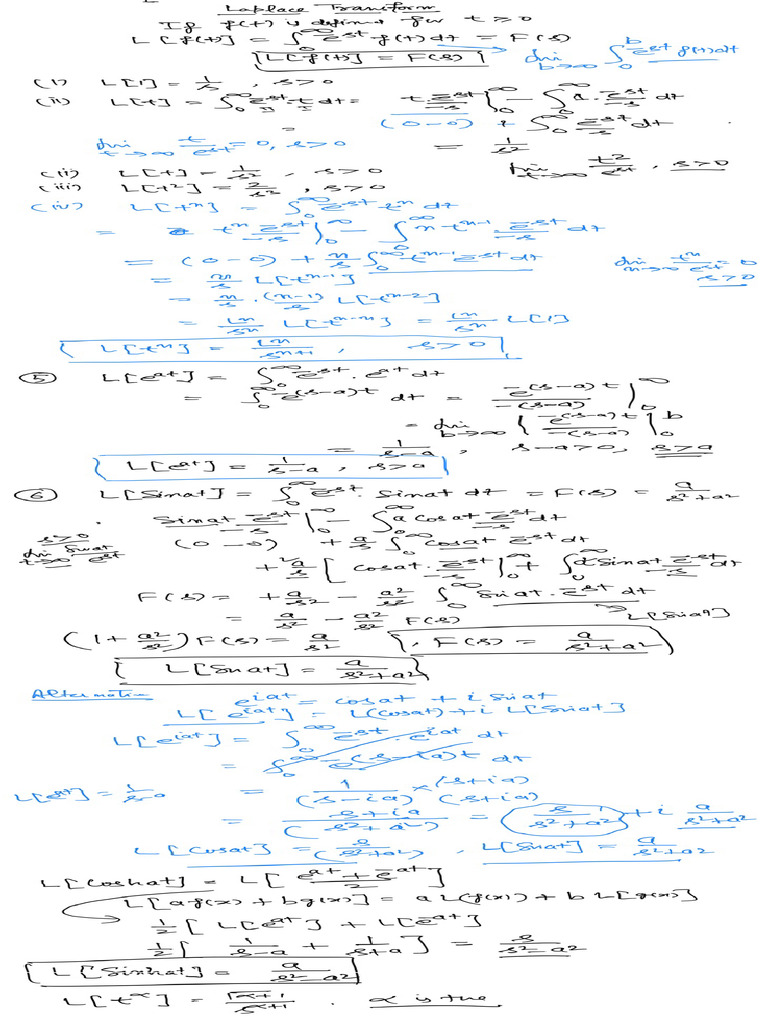 Laplace Transform
If f(t) is defined for t ≥ 0
L[f(t)] = ∫₀^∞ e^{-st} f(t) dt = F(s)
L[f(t)] = F(s)    lim_{b→∞} ∫₀^b e^{-st} f(t) dt
(i) L[1] = 1/s, s>0
(ii) L[t] = ∫₀^∞ e^{-st} · t dt = t e^{-st}/-s |₀^∞ - ∫₀^∞ a · e^{-st}/-s dt
= (0-0) + ∫₀^∞ e^{-st}/s dt
lim_{t→∞} t/e^{st} = 0, s>0    = 1/s²
(ii) L[t] = 1/s², s>0    lim_{t→∞} t²/e^{st}, s>0
(iii) L[t²] = 2/s³, s>0
(iv) L[tⁿ] = ∫₀^∞ e^{-st} tⁿ dt
= tⁿ e^{-st}/-s |₀^∞ - ∫₀^∞ n t^{n-1} e^{-st}/-s dt
= (0-0) + n/s ∫₀^∞ t^{n-1} e^{-st} dt    lim_{n→∞} tⁿ/e^{st} = 0
= n/s L[t^{n-1}]    s>0
= n/s · (n-1)/s L[t^{n-2}]
= ⌊n/sⁿ L[t^{n-n}] = ⌊n/sⁿ L[1]
L[tⁿ] = ⌊n/s^{n+1}, s>0
(5) L[e^{at}] = ∫₀^∞ e^{-st} · e^{at} dt
= ∫₀^∞ e^{-(s-a)t} dt = e^{-(s-a)t}/-(s-a) |₀^∞
= lim_{b→∞} [e^{-(s-a)t}/-(s-a)]₀^b
= 1/s-a, s-a>0, s>a
L[e^{at}] = 1/s-a, s>a
(6) L[Sinat] = ∫₀^∞ e^{-st} · Sinat dt = F(s) = a/s²+a²
Sinat e^{-st}/-s |₀^∞ - ∫₀^∞ a cosat e^{-st}/-s dt
s>0 lim_{t→∞} Sinat/e^{st}    (0-0) + a/s ∫₀^∞ cosat e^{-st} dt
+ a/s [cosat · e^{-st}/-s |₀^∞ + ∫₀^∞ a Sinat e^{-st}/-s dt
F(s) = + a/s² - a²/s² ∫₀^∞ Sinat · e^{-st} dt
= a/s² - a²/s² F(s)    L[Sinat]
(1 + a²/s²) F(s) = a/s²    , F(s) = a/s²+a²
L[Sinat] = a/s²+a²
Alternative    e^{iat} = cosat + i Sinat
L[e^{iat}] = L(cosat) + i L[Sinat]
L[e^{iat}] = ∫₀^∞ e^{-st} · e^{iat} dt
= ∫₀^∞ e^{-(s-ia)t} dt
L[e^{at}] = 1/s-a    = 1/(s-ia) × (s+ia)/(s+ia)
= s+ia/(s²+a²) = s/s²+a² + i a/s²+a²
L[Cosat] = s/(s²+a²), L[Sinat] = a/s²+a²
L[Coshat] = L[e^{at}+e^{-at}/2]
L[af(x) + bg(x)] = aL(f(x)) + bL[g(x)]
1/2 [L[e^{at}] + L[e^{-at}]
1/2 [1/s-a + 1/s+a] = s/s²-a²
L[Sinhat] = a/s²-a²
L[t^α] = Γα+1/s^{α+1}. α is the